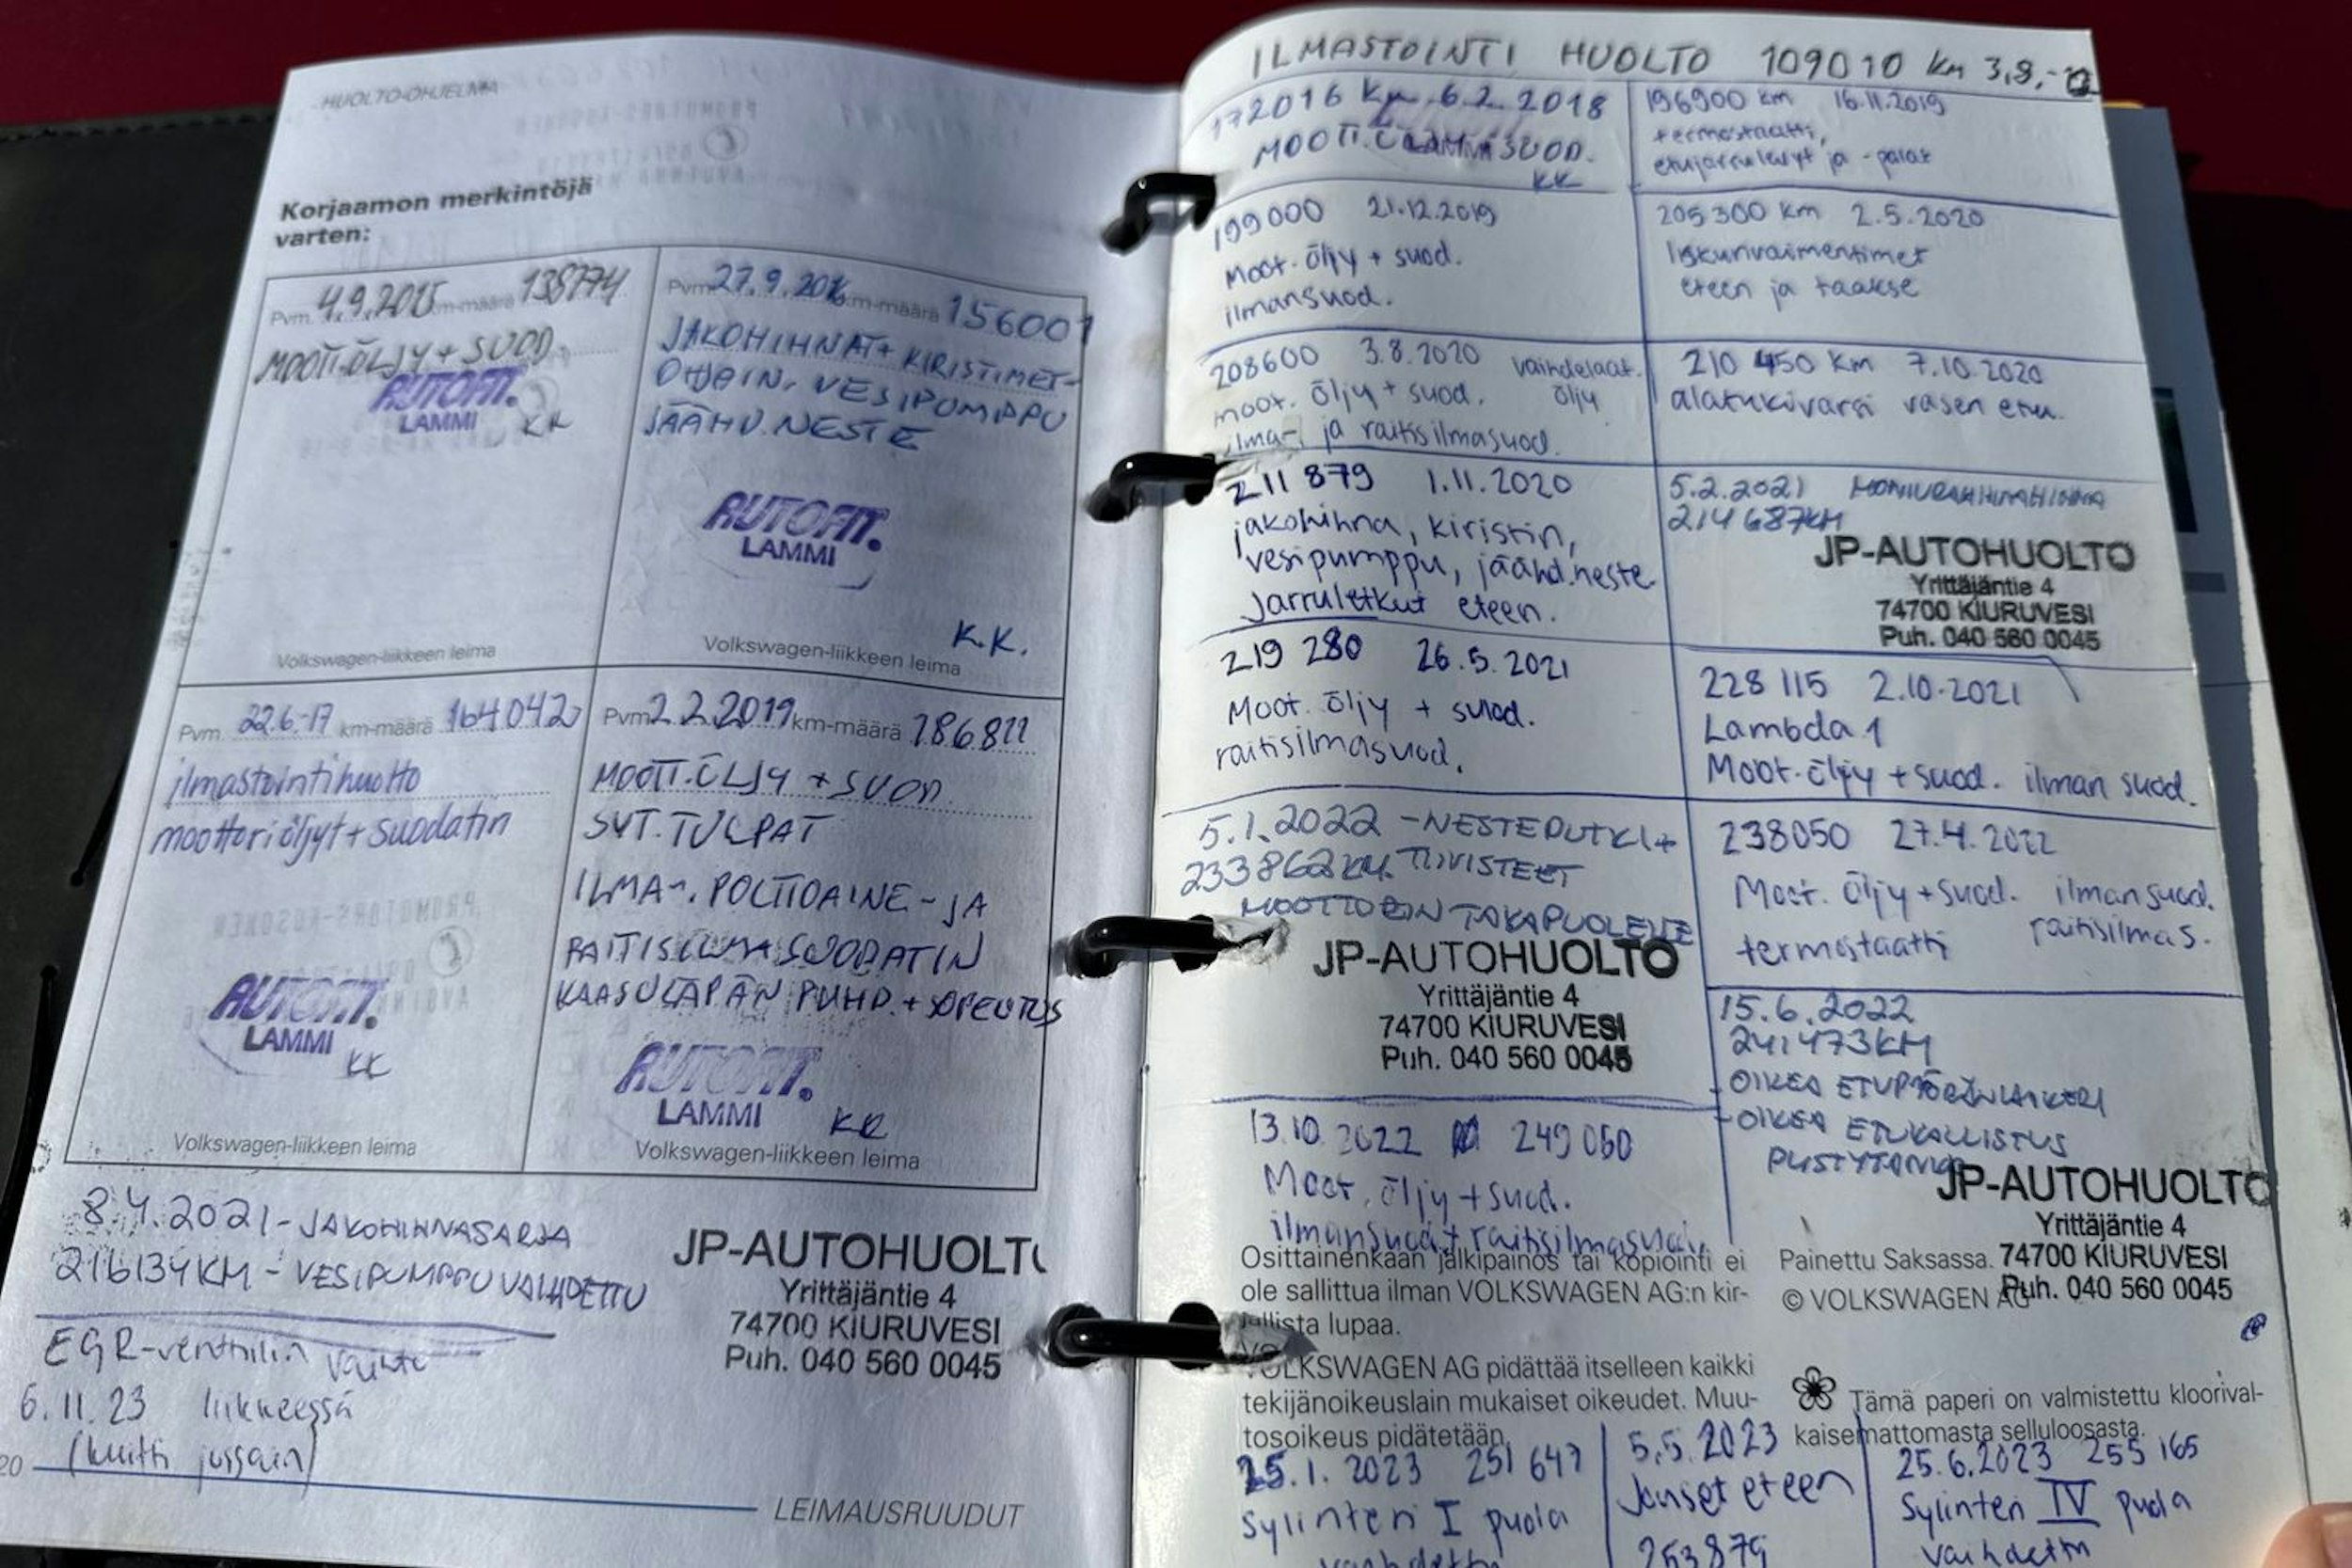 HUOLTO-OHJELMA
Korjaamon merkintöjä
varten:
Pvm. 4.9.2015 km-määrä 138774
MOOTT.ÖLJY + SUOD.
AUTOFIT.
LAMMI KK
Volkswagen-liikkeen leima
Pvm 27.9.2016 km-määrä 156001
JAKOHIHNAT + KIRISTIMET-
OHJAIN, VESIPUMPPU
JÄÄHD.NESTE
AUTOFIT.
LAMMI
K.K.
Volkswagen-liikkeen leima
Pvm. 22.6.-17 km-määrä 164042
ilmastointihuolto
moottoriöljyt + suodatin
AUTOFIT.
LAMMI KK
Volkswagen-liikkeen leima
Pvm 2.2.2019 km-määrä 186811
MOOTT.ÖLJY + SUOD.
SYT.TULPAT
ILMA-, POLTTOAINE- JA
RAITISILMASUODATIN
KAASULÄPÄN PUHD. + SOPEUTUS
AUTOFIT.
LAMMI KK
Volkswagen-liikkeen leima
8.4.2021 - JAKOHIHNASARJA
216134KM - VESIPUMPPU VAIHDETTU
JP-AUTOHUOLTO
Yrittäjäntie 4
74700 KIURUVESI
Puh. 040 560 0045
EGR-venttiilin vaihto
6.11.23 liikkeessä
(kuitti jossain)
20
LEIMAUSRUUDUT
ILMASTOINTI HUOLTO 109010 km 3,8,-
172016 Km 6.2.2018
MOOTT.ÖLJY + SUOD.
LAMMI
KK
196900 km 16.11.2019
termostaatti,
etujarrulevyt ja -palat
199000 21.12.2019
Moot. öljy + suod.
ilmansuod.
205300 km 2.5.2020
Iskunvaimentimet
eteen ja taakse
208600 3.8.2020 vaihdelaat.
moot. öljy + suod. öljy
ilma- ja raitisilmasuod.
210 450 km 7.10.2020
alatukivarsi vasen etu.
211 879 1.11.2020
jakohihna, kiristin,
vesipumppu, jäähd.neste
Jarruletkut eteen.
5.2.2021 MONIURAHIHNA
214 687KM
JP-AUTOHUOLTO
Yrittäjäntie 4
74700 KIURUVESI
Puh. 040 560 0045
219 280 26.5.2021
Moot. öljy + suod.
raitisilmasuod.
228 115 2.10.2021
Lambda 1
Moot. öljy + suod. ilman suod.
5.1.2022 - NESTEPUTKI +
233862KM. TIIVISTEET
MOOTTORIN TAKAPUOLELLE
JP-AUTOHUOLTO
Yrittäjäntie 4
74700 KIURUVESI
Puh. 040 560 0045
238050 27.4.2022
Moot. öljy + suod. ilmansuod.
termostaatti raitisilmas.
15.6.2022
241473KM
- OIKEA ETUPYÖRÄNLAAKERI
- OIKEA ETUKALLISTUS
PYSTYTANKO
JP-AUTOHUOLTO
Yrittäjäntie 4
74700 KIURUVESI
Puh. 040 560 0045
13.10.2022 249 060
Moot. öljy + suod.
ilmansuod + raitisilmasuod.
Osittainenkaan jälkipainos tai kopiointi ei
ole sallittua ilman VOLKSWAGEN AG:n kir-
jallista lupaa.
VOLKSWAGEN AG pidättää itselleen kaikki
tekijänoikeuslain mukaiset oikeudet. Muu-
tosoikeus pidätetään.
Painettu Saksassa.
© VOLKSWAGEN AG
Tämä paperi on valmistettu kloorival-
kaisemattomasta selluloosasta.
25.1.2023 251 647
Sylinteri I puola
vaihdettu
5.5.2023
Jouset eteen
253879
25.6.2023 255 165
Sylinteri IV puola
vaihdettu